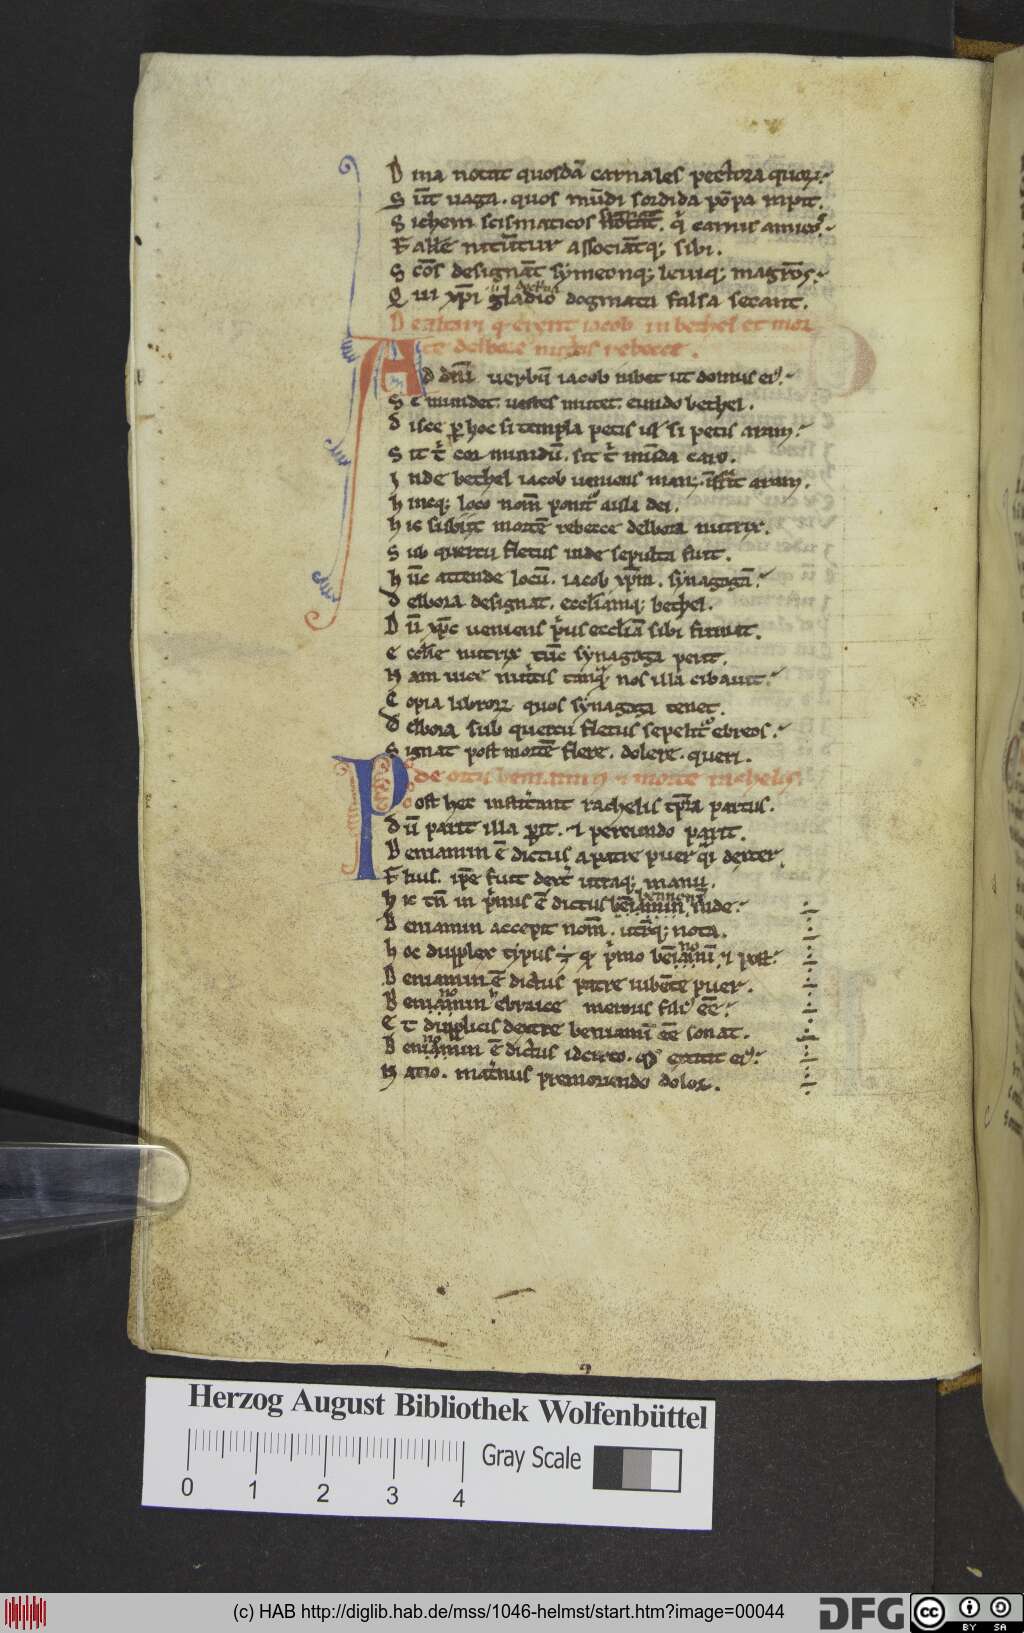 Dina notat quosdā carnales pectora quoꝝ
Sūt uaga. quos mūdi sordida pōpa rapit.
Sichem scismaticos notat. q̇ carnis amicos
Falle nitūtur associātq; sibi.
Scōs designāt symeonq; leuiq; magr̄os
Qui xp̄i gladio dogmata falsa secant.
De altari qd̄ erexit iacob in bethel et mor
te delbore nutricis rebecce.
Ad dn̄i uerbū iacob iubet ut domus ei᷒
Se mundet. uestes mutet. eundo bethel.
Disce ꝑ hoc si templa petis ul̄ si petis aram
Sit t̄ cor mundū. sit t̄ mūda caro.
Inde bethel iacob ueniens
aram.
Hincq; loco nom̄ ponit᷑ aula dei.
Hic subiit mortē rebecce delbora nutrix.
Sub quercu fletus inde sepulta fuit.
Hūc attende locū. iacob xp̄m. synagogā
Delbora designat. eccl̄iamq; bethel.
Dū xp̄c ueniens p̄us eccl̄iā sibi firmat.
Eccl̄ie nutrix tūc synagoga perit.
Nam uice nut̄cis tanq̄ nos illa cibauit
Copia libroꝝ quos synagoga tenet.
Delbora sub quercu fletus sepelit᷑ ebreos
Signat post mortē flere. dolere. queri.
De ortu beniamin ⁊ morte rachelis.
Post hec instāt rachelis tp̄ra partus.
Dū parit illa ꝑit. ⁊ pereundo parit.
Beniamin ē dictus a patre puer qi dexter
Filius. ip̄e fuit dext̄ utraq; manu.
Hic tn̄ in p̄mis ē dictus beniamin inde
bennoni
Beniamin accepit nom̄. utr̄q; nota.
Hoc dupplex typus ÷ qd̄ p̄mo beniamī ⁊ post
Beniamin ē dictus patre iubēte puer.
Beniamin ebraice meroris fili᷒ eē
Et dupplicis dextre beniamī eē sonat.
Beniamin ē dictus idcirco. qd̄ extitit ei᷒
Ratio. mat̄nus premoriendo dolor.
Herzog August Bibliothek Wolfenbüttel
Gray Scale
0 1 2 3 4
(c) HAB http://diglib.hab.de/mss/1046-helmst/start.htm?image=00044
DFG
cc BY SA